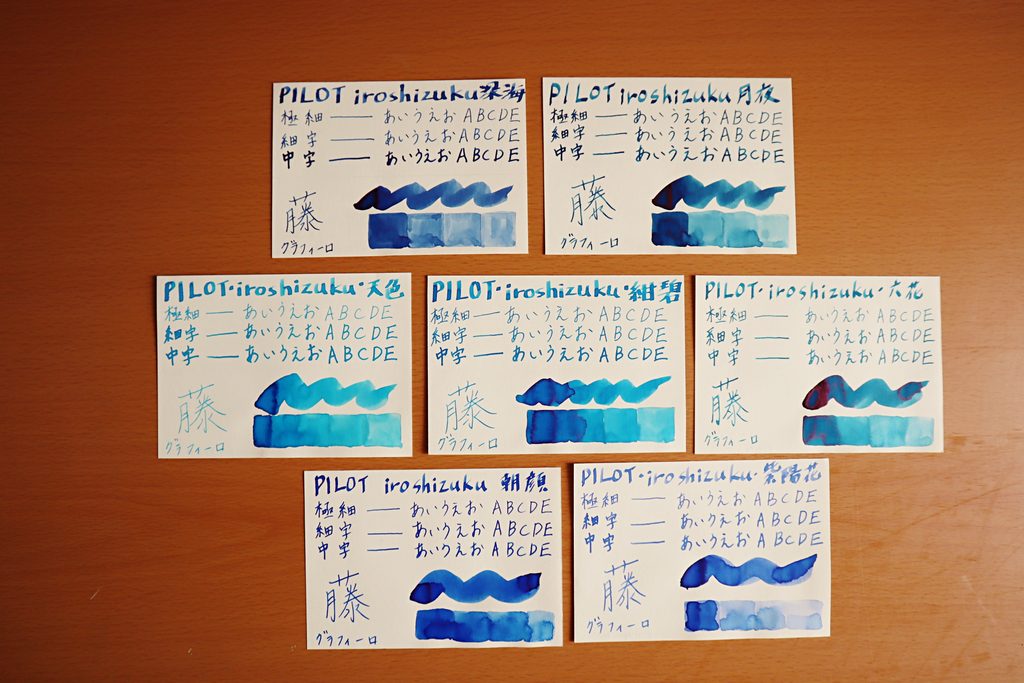 PILOT iroshizuku 深海
極細 — あいうえお ABCDE
細字 — あいうえお ABCDE
中字 — あいうえお ABCDE
藤
グラフィーロ
PILOT iroshizuku 月夜
極細 — あいうえお ABCDE
細字 — あいうえお ABCDE
中字 — あいうえお ABCDE
藤
グラフィーロ
PILOT・iroshizuku・天色
極細 — あいうえお ABCDE
細字 — あいうえお ABCDE
中字 — あいうえお ABCDE
藤
グラフィーロ
PILOT・iroshizuku・紺碧
極細 — あいうえお ABCDE
細字 — あいうえお ABCDE
中字 — あいうえお ABCDE
藤
グラフィーロ
PILOT・iroshizuku・六花
極細 — あいうえお ABCDE
細字 — あいうえお ABCDE
中字 — あいうえお ABCDE
藤
グラフィーロ
PILOT iroshizuku 朝顔
極細 — あいうえお ABCDE
細字 — あいうえお ABCDE
中字 — あいうえお ABCDE
藤
グラフィーロ
PILOT・iroshizuku・紫陽花
極細 — あいうえお ABCDE
細字 — あいうえお ABCDE
中字 — あいうえお ABCDE
藤
グラフィーロ